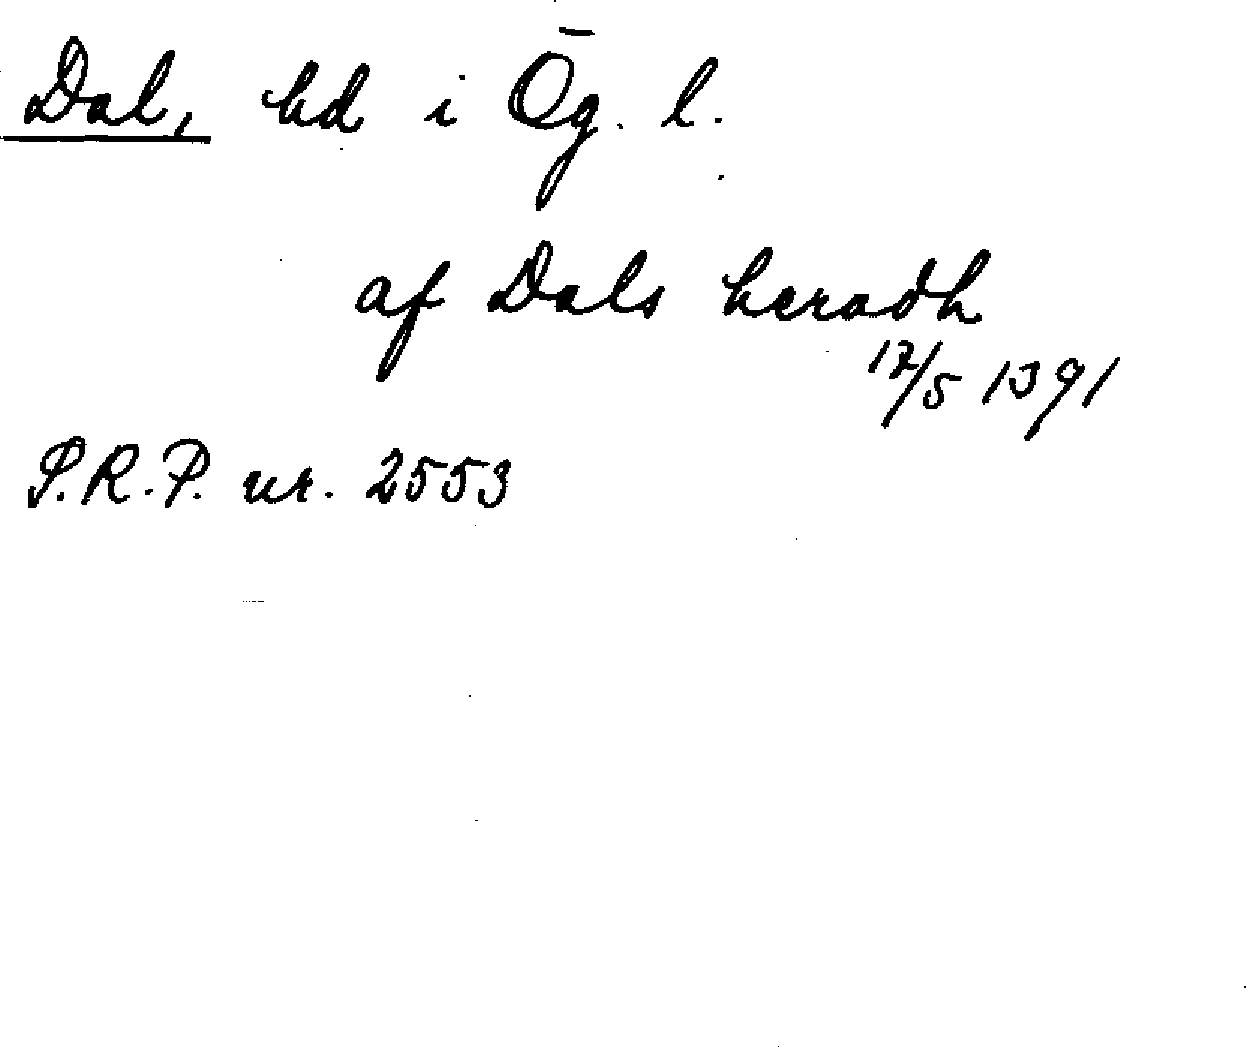 Dal, hd i Ög. l.
af Dals heradh
12/5 1391
S.R.P. nr. 2553